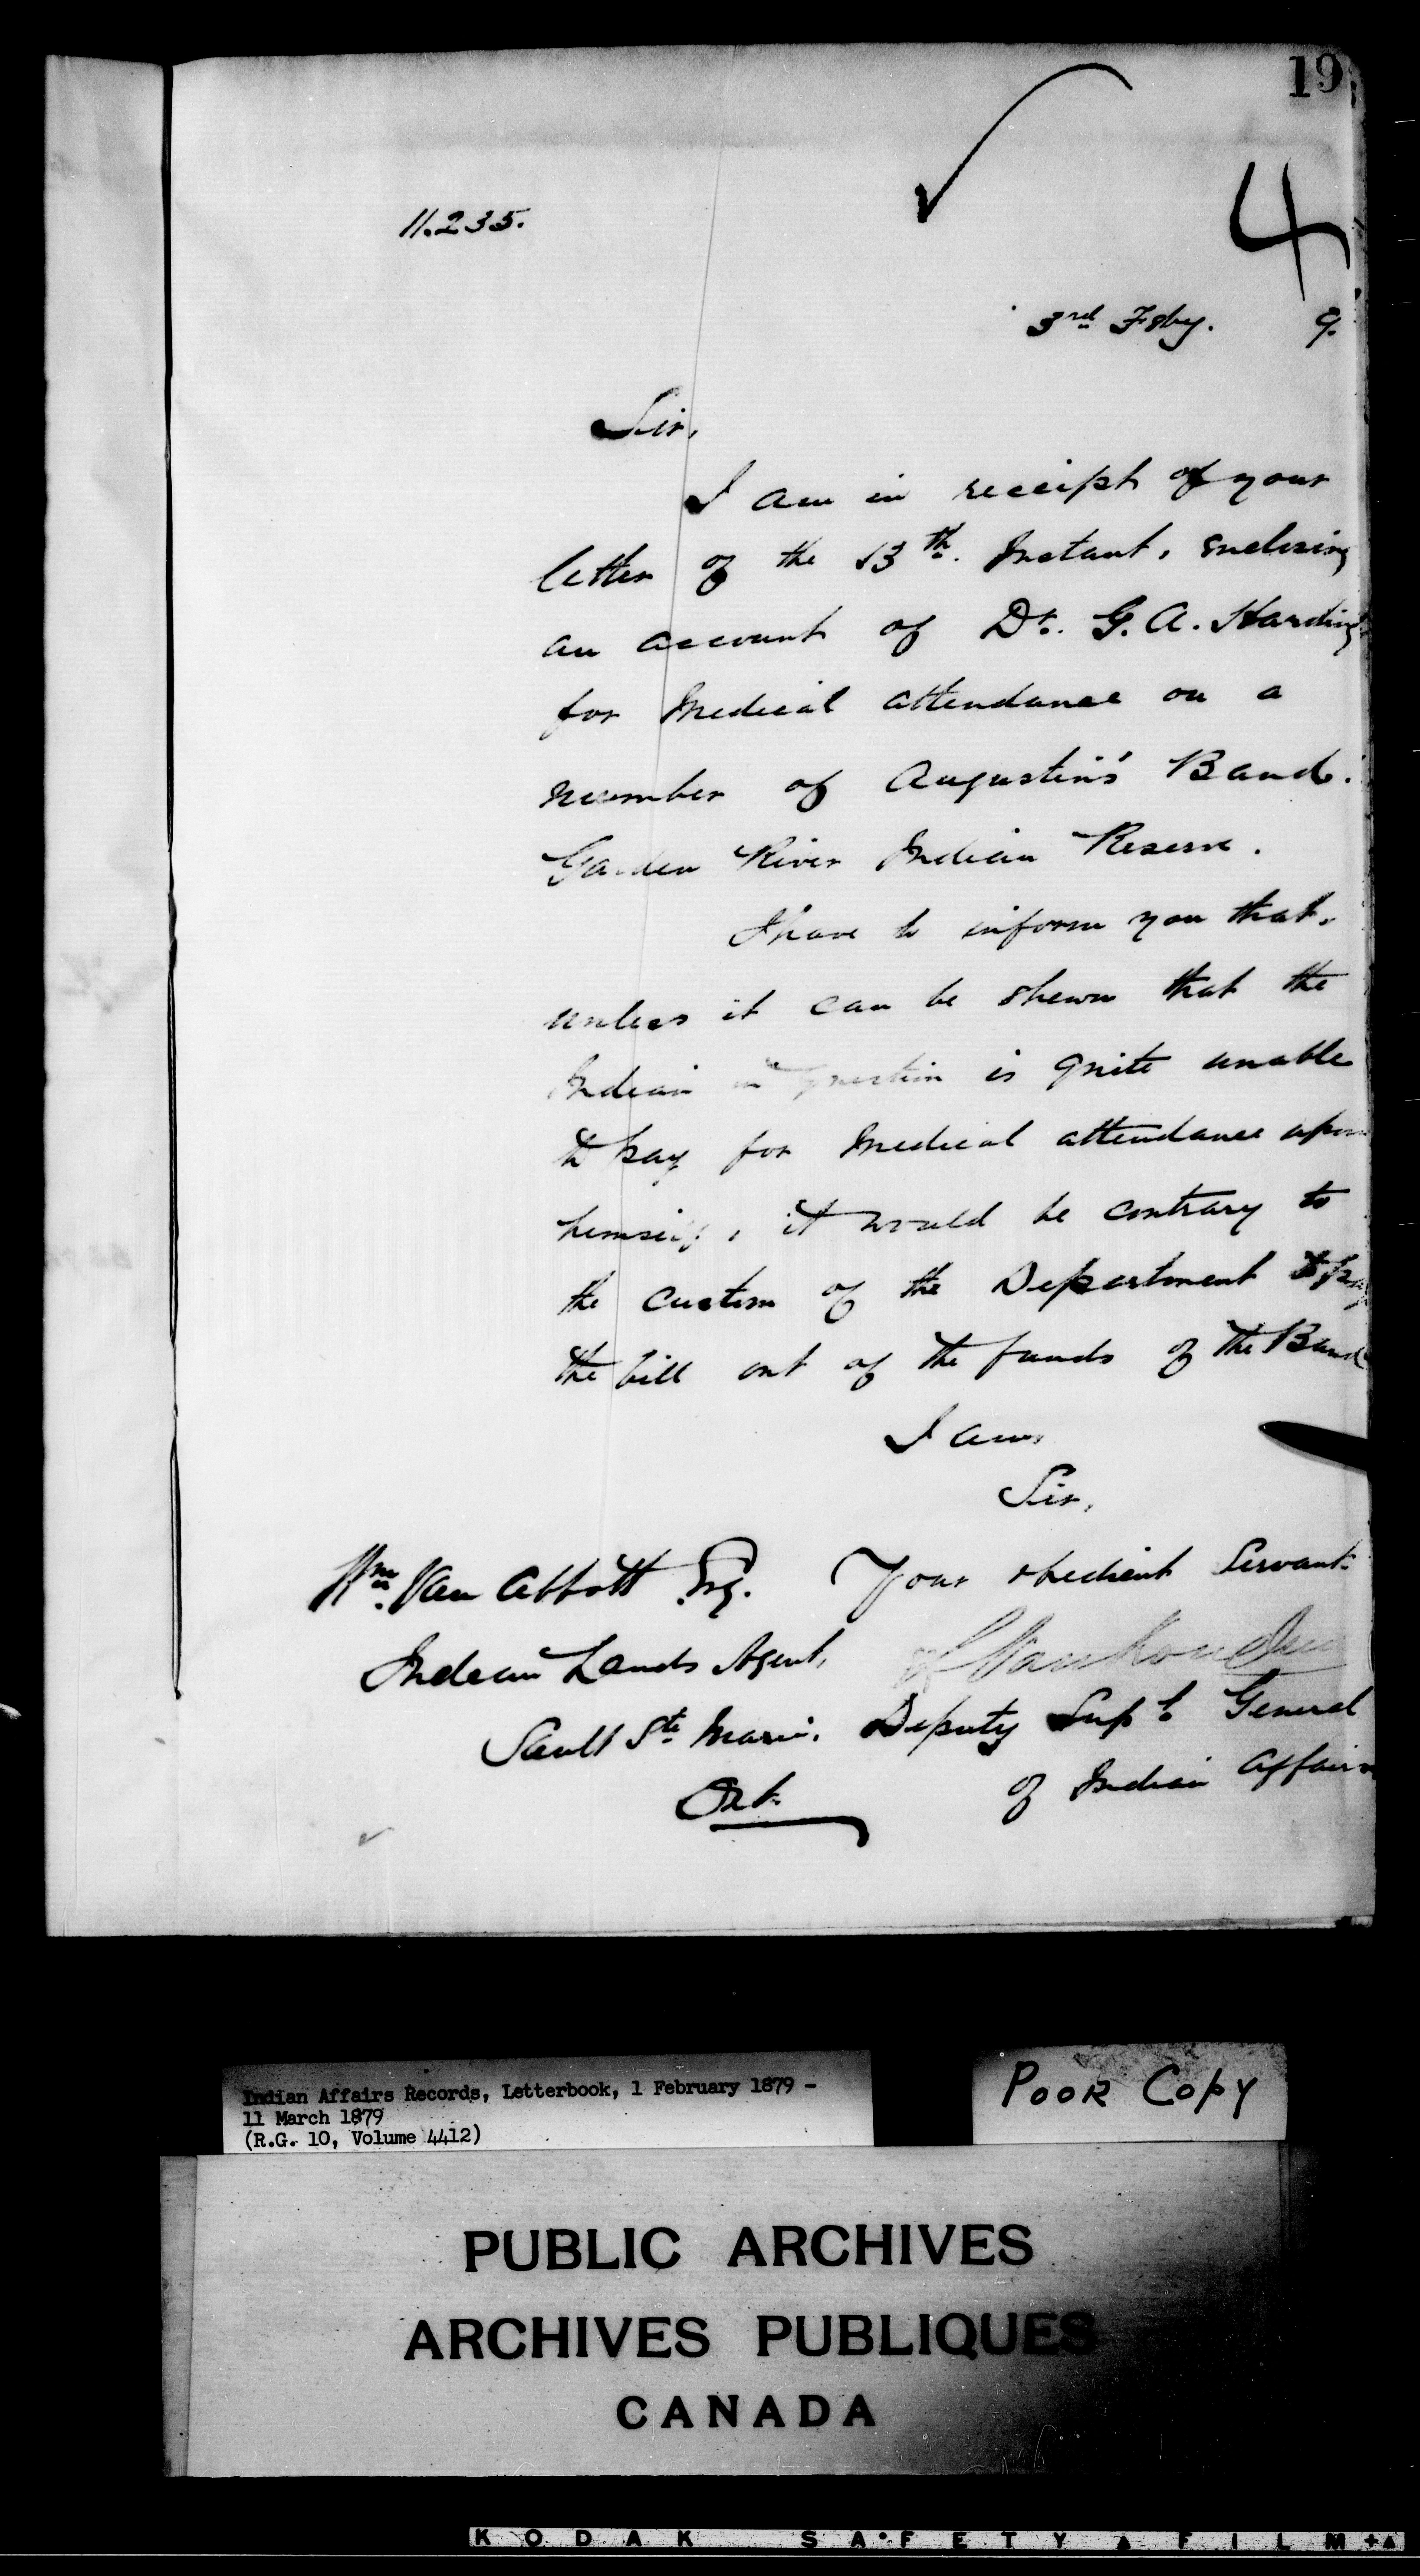 19
4
11.235.
3rd Feby. 9.
Sir,
I am in receipt of your
letter of the 13th. Instant, enclosing
an account of Dr. G. A. Harding
for Medical attendance on a
number of Augustin's Band.
Garden River Indian Reserve.
I have to inform you that,
unless it can be shewn that the
Indian in question is quite unable
to pay for Medical attendance upon
himself, it would be contrary to
the custom of the Department to pay
the bill out of the funds of the Band
I am,
Sir,
Your obedient Servant
Deputy Supt. General
of Indian Affairs
Wm. Van Abbott Esq.
Indian Lands Agent,
Sault Ste Marie.
Ont.
Indian Affairs Records, Letterbook, 1 February 1879 -
11 March 1879
(R.G. 10, Volume 4412)
POOR COPY
PUBLIC ARCHIVES
ARCHIVES PUBLIQUES
CANADA
KODAK SAFETY FILM